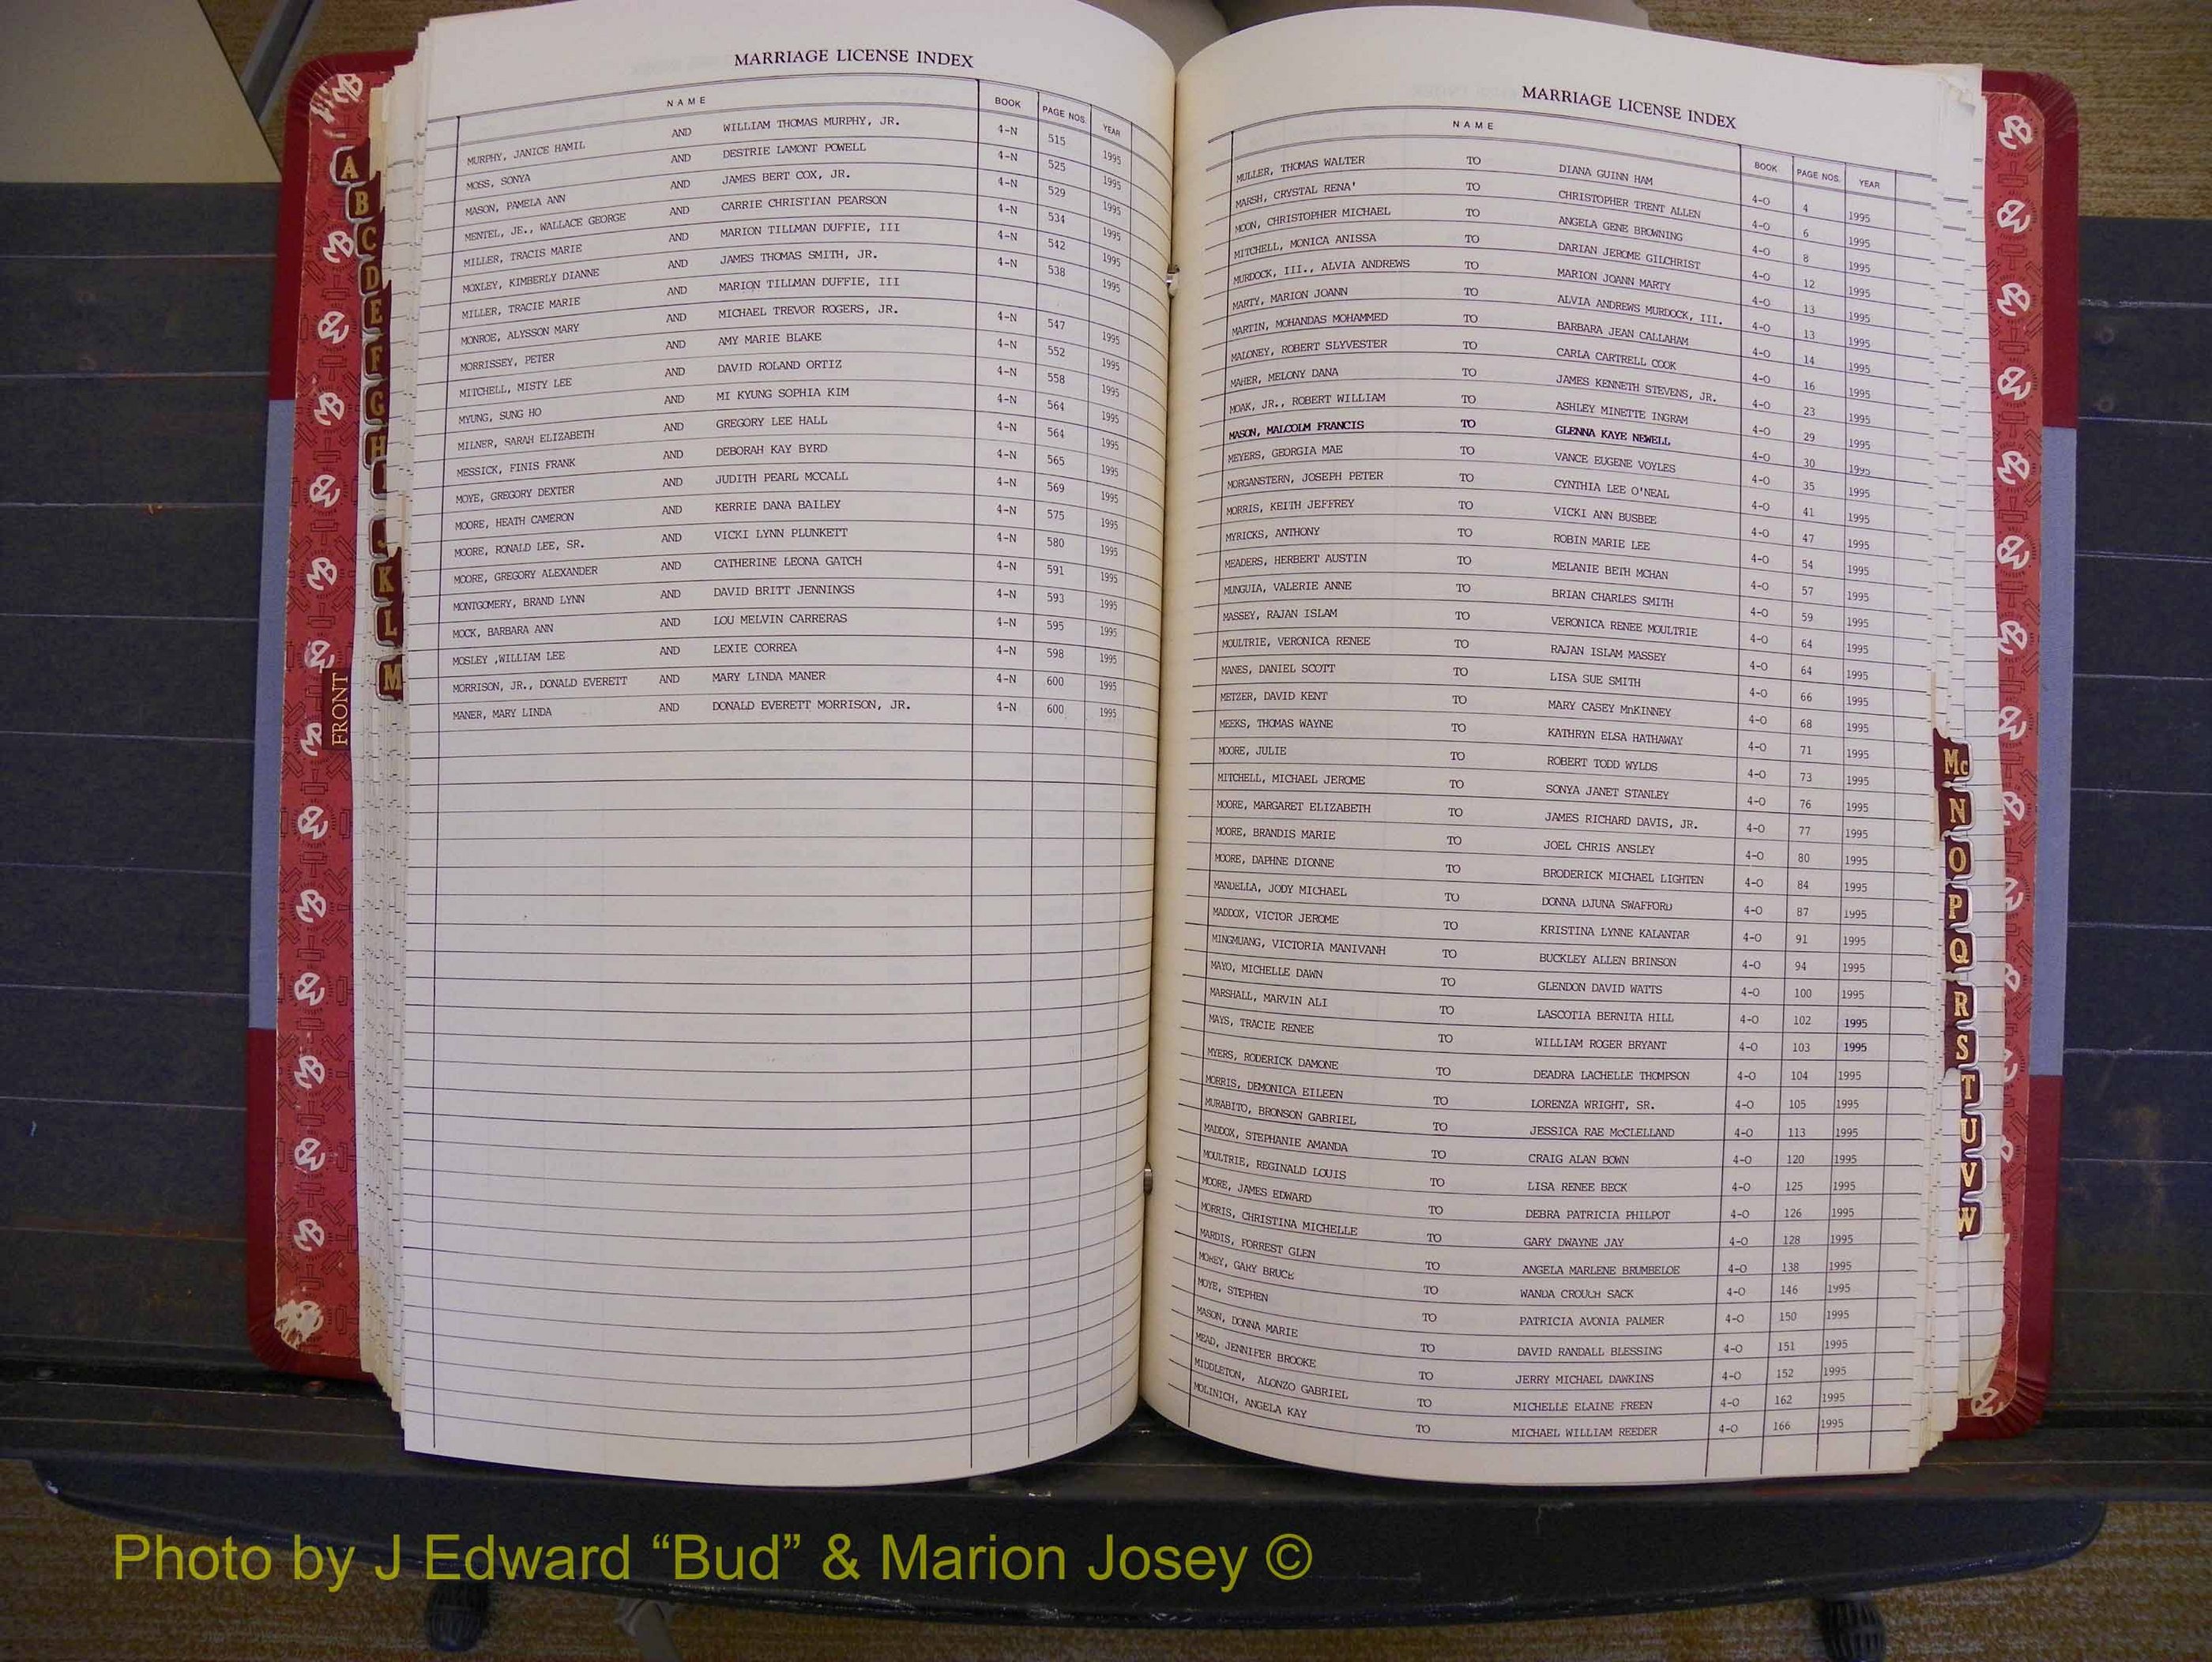 MARRIAGE LICENSE INDEX
NAME BOOK PAGE NOS. YEAR
MURPHY, JANICE HAMIL AND WILLIAM THOMAS MURPHY, JR. 4-N 515 1995
MOSS, SONYA AND DESTRIE LAMONT POWELL 4-N 525 1995
MASON, PAMELA ANN AND JAMES BERT COX, JR. 4-N 529 1995
MENTEL, JE., WALLACE GEORGE AND CARRIE CHRISTIAN PEARSON 4-N 534 1995
MILLER, TRACIS MARIE AND MARION TILLMAN DUFFIE, III 4-N 542 1995
MOXLEY, KIMBERLY DIANNE AND JAMES THOMAS SMITH, JR. 4-N 538 1995
MILLER, TRACIE MARIE AND MARION TILLMAN DUFFIE, III
MONROE, ALYSSON MARY AND MICHAEL TREVOR ROGERS, JR. 4-N 547 1995
MORRISSEY, PETER AND AMY MARIE BLAKE 4-N 552 1995
MITCHELL, MISTY LEE AND DAVID ROLAND ORTIZ 4-N 558 1995
MYUNG, SUNG HO AND MI KYUNG SOPHIA KIM 4-N 564 1995
MILNER, SARAH ELIZABETH AND GREGORY LEE HALL 4-N 564 1995
MESSICK, FINIS FRANK AND DEBORAH KAY BYRD 4-N 565 1995
MOYE, GREGORY DEXTER AND JUDITH PEARL MCCALL 4-N 569 1995
MOORE, HEATH CAMERON AND KERRIE DANA BAILEY 4-N 575 1995
MOORE, RONALD LEE, SR. AND VICKI LYNN PLUNKETT 4-N 580 1995
MOORE, GREGORY ALEXANDER AND CATHERINE LEONA GATCH 4-N 591 1995
MONTGOMERY, BRAND LYNN AND DAVID BRITT JENNINGS 4-N 593 1995
MOCK, BARBARA ANN AND LOU MELVIN CARRERAS 4-N 595 1995
MOSLEY ,WILLIAM LEE AND LEXIE CORREA 4-N 598 1995
MORRISON, JR., DONALD EVERETT AND MARY LINDA MANER 4-N 600 1995
MANER, MARY LINDA AND DONALD EVERETT MORRISON, JR. 4-N 600 1995
MARRIAGE LICENSE INDEX
NAME BOOK PAGE NOS. YEAR
MULLER, THOMAS WALTER TO DIANA GUINN HAM 4-O 4 1995
MARSH, CRYSTAL RENA' TO CHRISTOPHER TRENT ALLEN 4-O 6 1995
MOON, CHRISTOPHER MICHAEL TO ANGELA GENE BROWNING 4-O 8 1995
MITCHELL, MONICA ANISSA TO DARIAN JEROME GILCHRIST 4-O 12 1995
MURDOCK, III., ALVIA ANDREWS TO MARION JOANN MARTY 4-O 13 1995
MARTY, MARION JOANN TO ALVIA ANDREWS MURDOCK, III. 4-O 13 1995
MARTIN, MOHANDAS MOHAMMED TO BARBARA JEAN CALLAHAM 4-O 14 1995
MALONEY, ROBERT SLYVESTER TO CARLA CARTRELL COOK 4-O 16 1995
MAHER, MELONY DANA TO JAMES KENNETH STEVENS, JR. 4-O 23 1995
MOAK, JR., ROBERT WILLIAM TO ASHLEY MINETTE INGRAM 4-O 29 1995
MASON, MALCOLM FRANCIS TO GLENNA KAYE NEWELL 4-O 30 1995
MEYERS, GEORGIA MAE TO VANCE EUGENE VOYLES 4-O 35 1995
MORGANSTERN, JOSEPH PETER TO CYNTHIA LEE O'NEAL 4-O 41 1995
MORRIS, KEITH JEFFREY TO VICKI ANN BUSBEE 4-O 47 1995
MYRICKS, ANTHONY TO ROBIN MARIE LEE 4-O 54 1995
MEADERS, HERBERT AUSTIN TO MELANIE BETH MCHAN 4-O 57 1995
MUNGUIA, VALERIE ANNE TO BRIAN CHARLES SMITH 4-O 59 1995
MASSEY, RAJAN ISLAM TO VERONICA RENEE MOULTRIE 4-O 64 1995
MOULTRIE, VERONICA RENEE TO RAJAN ISLAM MASSEY 4-O 64 1995
MANES, DANIEL SCOTT TO LISA SUE SMITH 4-O 66 1995
METZER, DAVID KENT TO MARY CASEY MnKINNEY 4-O 68 1995
MEEKS, THOMAS WAYNE TO KATHRYN ELSA HATHAWAY 4-O 71 1995
MOORE, JULIE TO ROBERT TODD WYLDS 4-O 73 1995
MITCHELL, MICHAEL JEROME TO SONYA JANET STANLEY 4-O 76 1995
MOORE, MARGARET ELIZABETH TO JAMES RICHARD DAVIS, JR. 4-O 77 1995
MOORE, BRANDIS MARIE TO JOEL CHRIS ANSLEY 4-O 80 1995
MOORE, DAPHNE DIONNE TO BRODERICK MICHAEL LIGHTEN 4-O 84 1995
MANDELLA, JODY MICHAEL TO DONNA DJUNA SWAFFORD 4-O 87 1995
MADDOX, VICTOR JEROME TO KRISTINA LYNNE KALANTAR 4-O 91 1995
MINGMUANG, VICTORIA MANIVANH TO BUCKLEY ALLEN BRINSON 4-O 94 1995
MAYO, MICHELLE DAWN TO GLENDON DAVID WATTS 4-O 100 1995
MARSHALL, MARVIN ALI TO LASCOTIA BERNITA HILL 4-O 102 1995
MAYS, TRACIE RENEE TO WILLIAM ROGER BRYANT 4-O 103 1995
MYERS, RODERICK DAMONE TO DEADRA LACHELLE THOMPSON 4-O 104 1995
MORRIS, DEMONICA EILEEN TO LORENZA WRIGHT, SR. 4-O 105 1995
MURABITO, BRONSON GABRIEL TO JESSICA RAE McCLELLAND 4-O 113 1995
MADDOX, STEPHANIE AMANDA TO CRAIG ALAN BOWN 4-O 120 1995
MOULTRIE, REGINALD LOUIS TO LISA RENEE BECK 4-O 125 1995
MOORE, JAMES EDWARD TO DEBRA PATRICIA PHILPOT 4-O 126 1995
MORRIS, CHRISTINA MICHELLE TO GARY DWAYNE JAY 4-O 128 1995
MARDIS, FORREST GLEN TO ANGELA MARLENE BRUMBELOE 4-O 138 1995
GARY BRUCE TO WANDA CROUCH SACK 4-O 146 1995
MOYE, STEPHEN TO PATRICIA AVONIA PALMER 4-O 150 1995
MASON, DONNA MARIE TO DAVID RANDALL BLESSING 4-O 151 1995
MEAD, JENNIFER BROOKE TO JERRY MICHAEL DAWKINS 4-O 152 1995
MIDDLETON, ALONZO GABRIEL TO MICHELLE ELAINE FREEN 4-O 162 1995
MOLINICH, ANGELA KAY TO MICHAEL WILLIAM REEDER 4-O 166 1995
A
B
C
D
E
F
G
H
J
K
L
M
FRONT
Mc
N
O
P
Q
R
S
T
U
V
W
Photo by J Edward “Bud” & Marion Josey ©